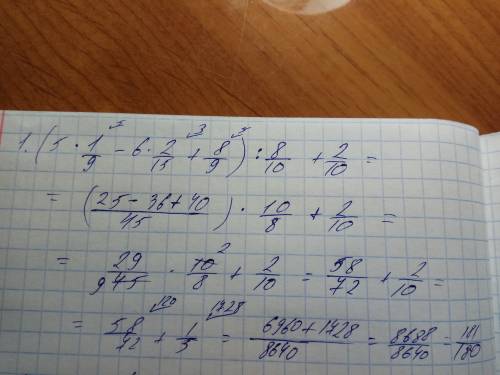 1. (5 · 1/9 - 6 · 2/15 + 8/9) : 8/10 + 2/10 =
= (25 - 36 + 40 / 45) · 10/8 + 2/10 =
= 29/9 45 · 10 2/8 + 2/10 = 58/72 + 2/10 =
= 58/72 + 1/5 = 6960 + 1728/8640 = 8688/8640 = 181/180